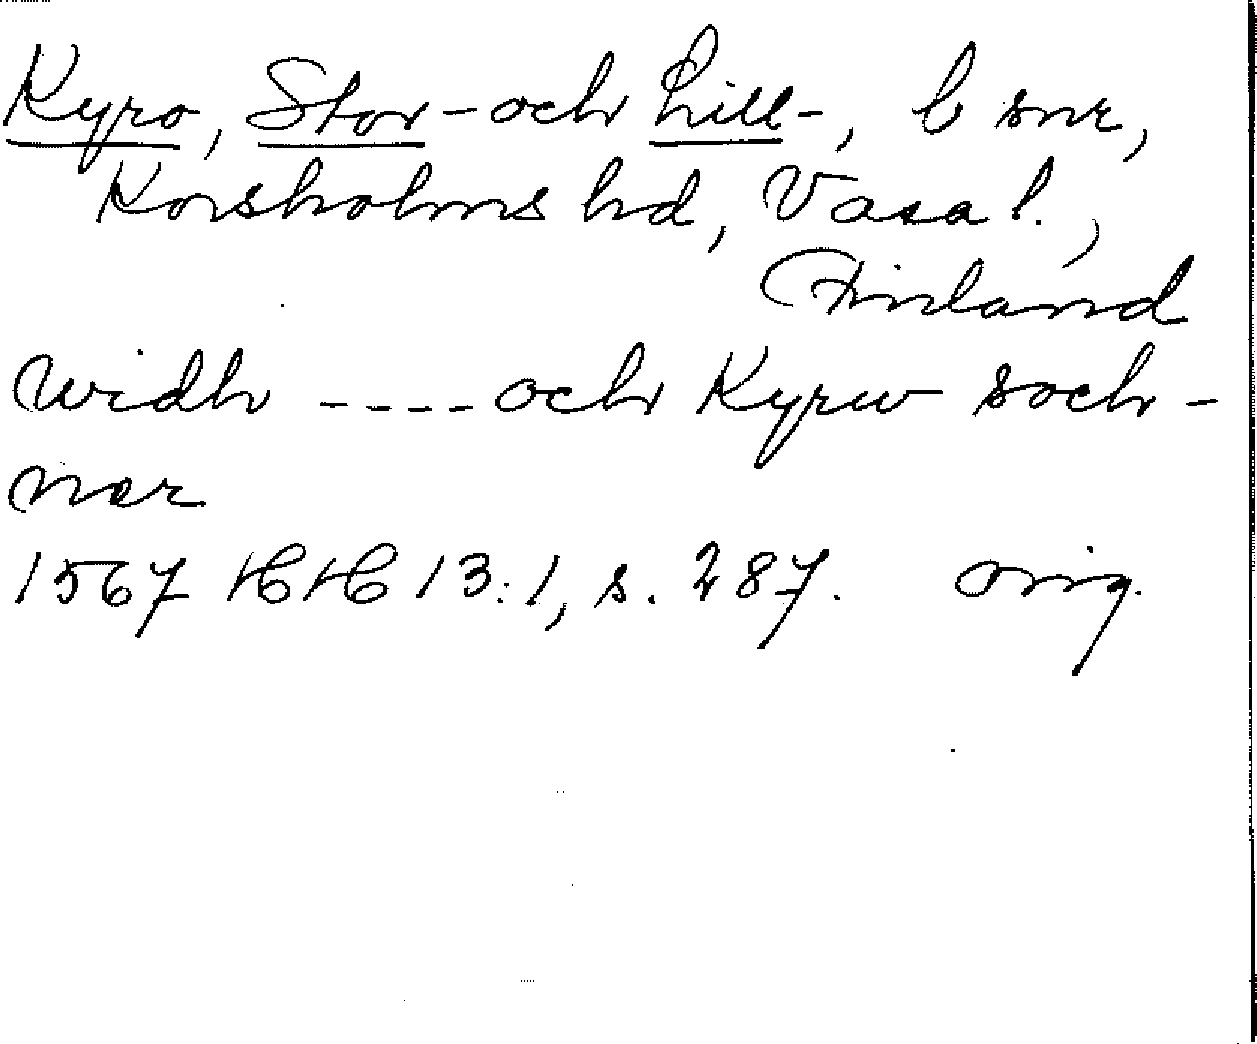 Kyro, Stor- och Lill-, b snr,
Korsholms hd, Vasa l.,
Finland
widh ---- och Kyrw soch-
ner
1567 HH 13:1, s. 287. orig.